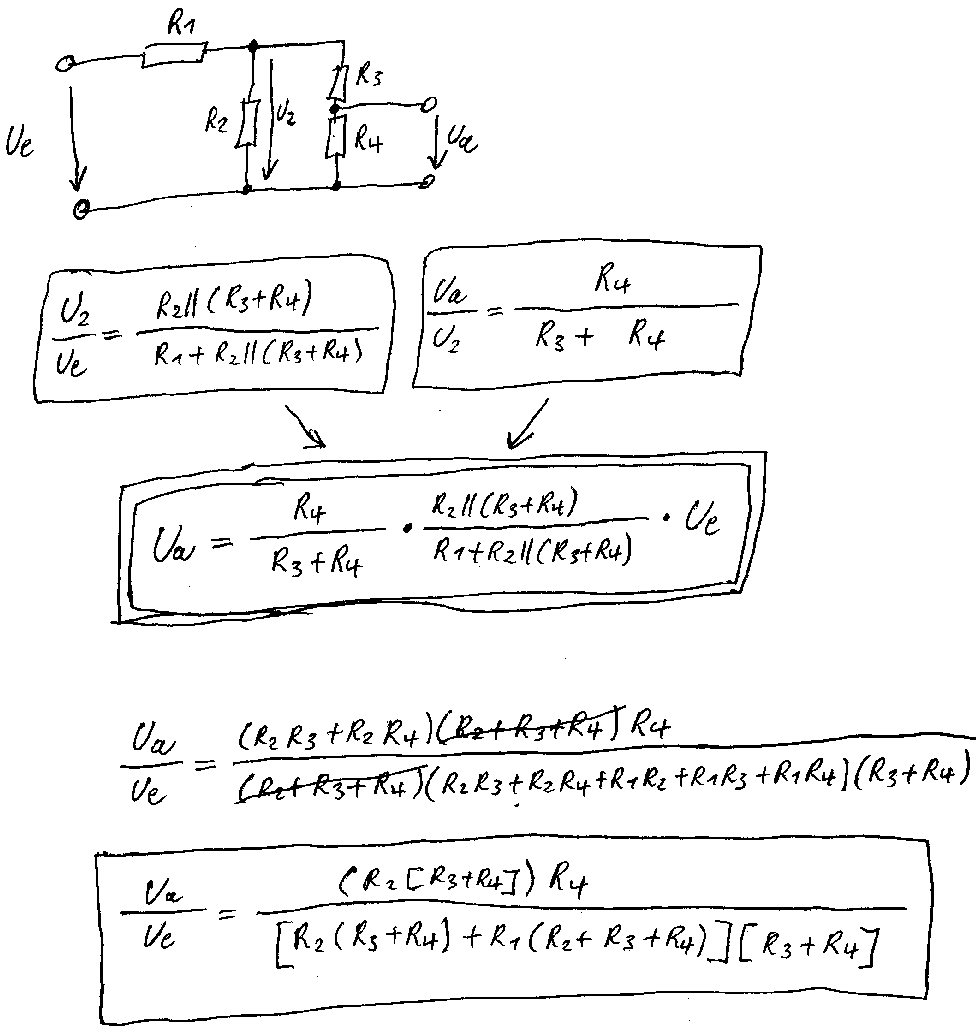 R1
R3
R2 U2
R4
Ue Ua
U2/Ue = R2||(R3+R4) / R1+R2||(R3+R4)
Ua/U2 = R4 / R3 + R4
Ua = R4 / R3+R4 · R2||(R3+R4) / R1+R2||(R3+R4) · Ue
Ua/Ue = (R2R3+R2R4)(R2+R3+R4)R4 / (R2+R3+R4)(R2R3+R2R4+R1R2+R1R3+R1R4)(R3+R4)
Ua/Ue = (R2[R3+R4])R4 / [R2(R3+R4)+R1(R2+R3+R4)][R3+R4]